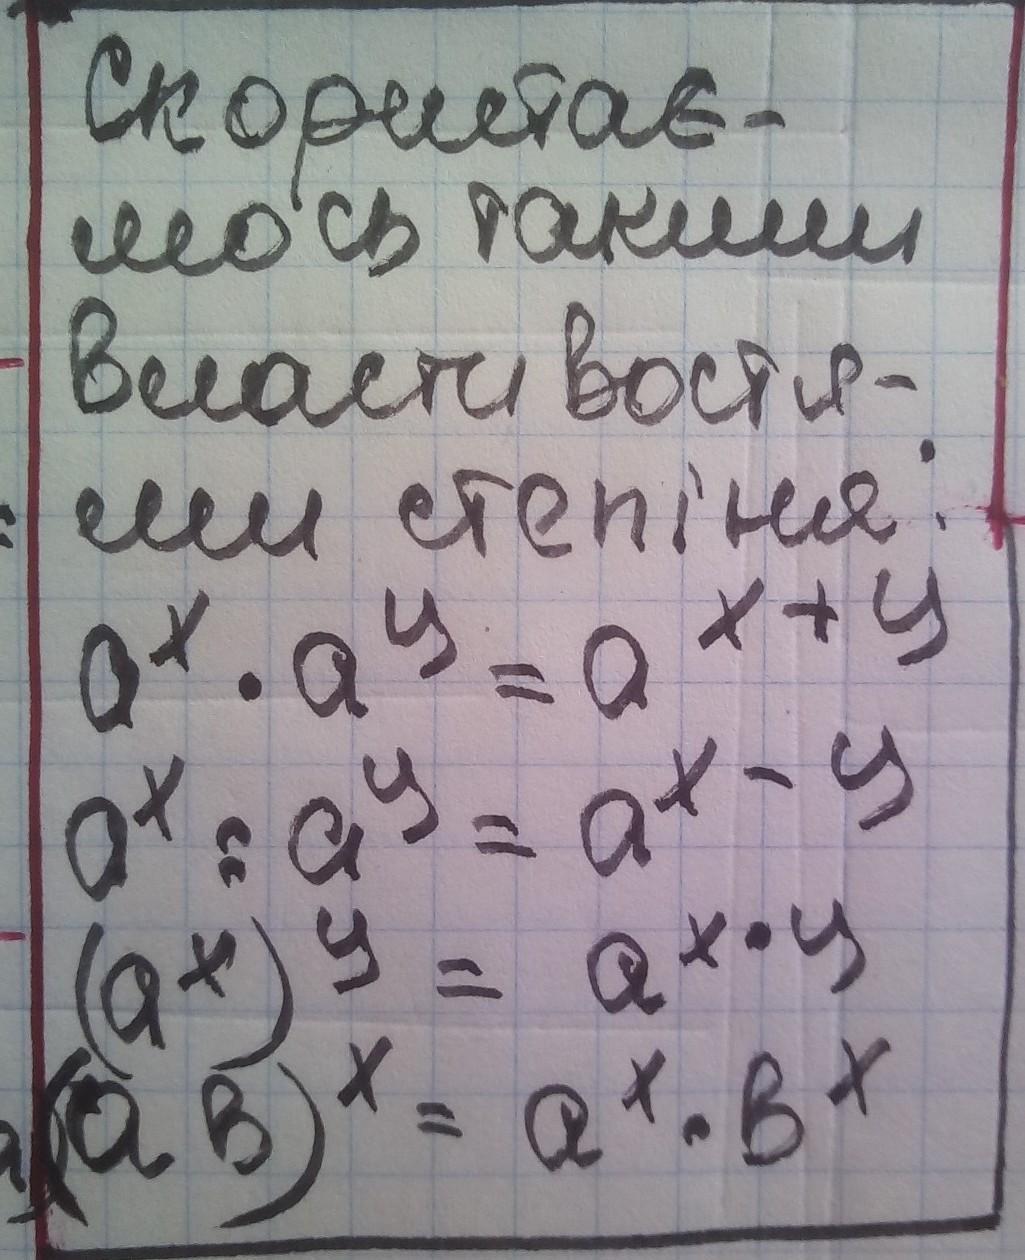 Скористає-
мось такими
властивостя-
ми степіня:
a^x · a^y = a^{x+y}
a^x : a^y = a^{x-y}
(a^x)^y = a^{x·y}
(ab)^x = a^x · b^x